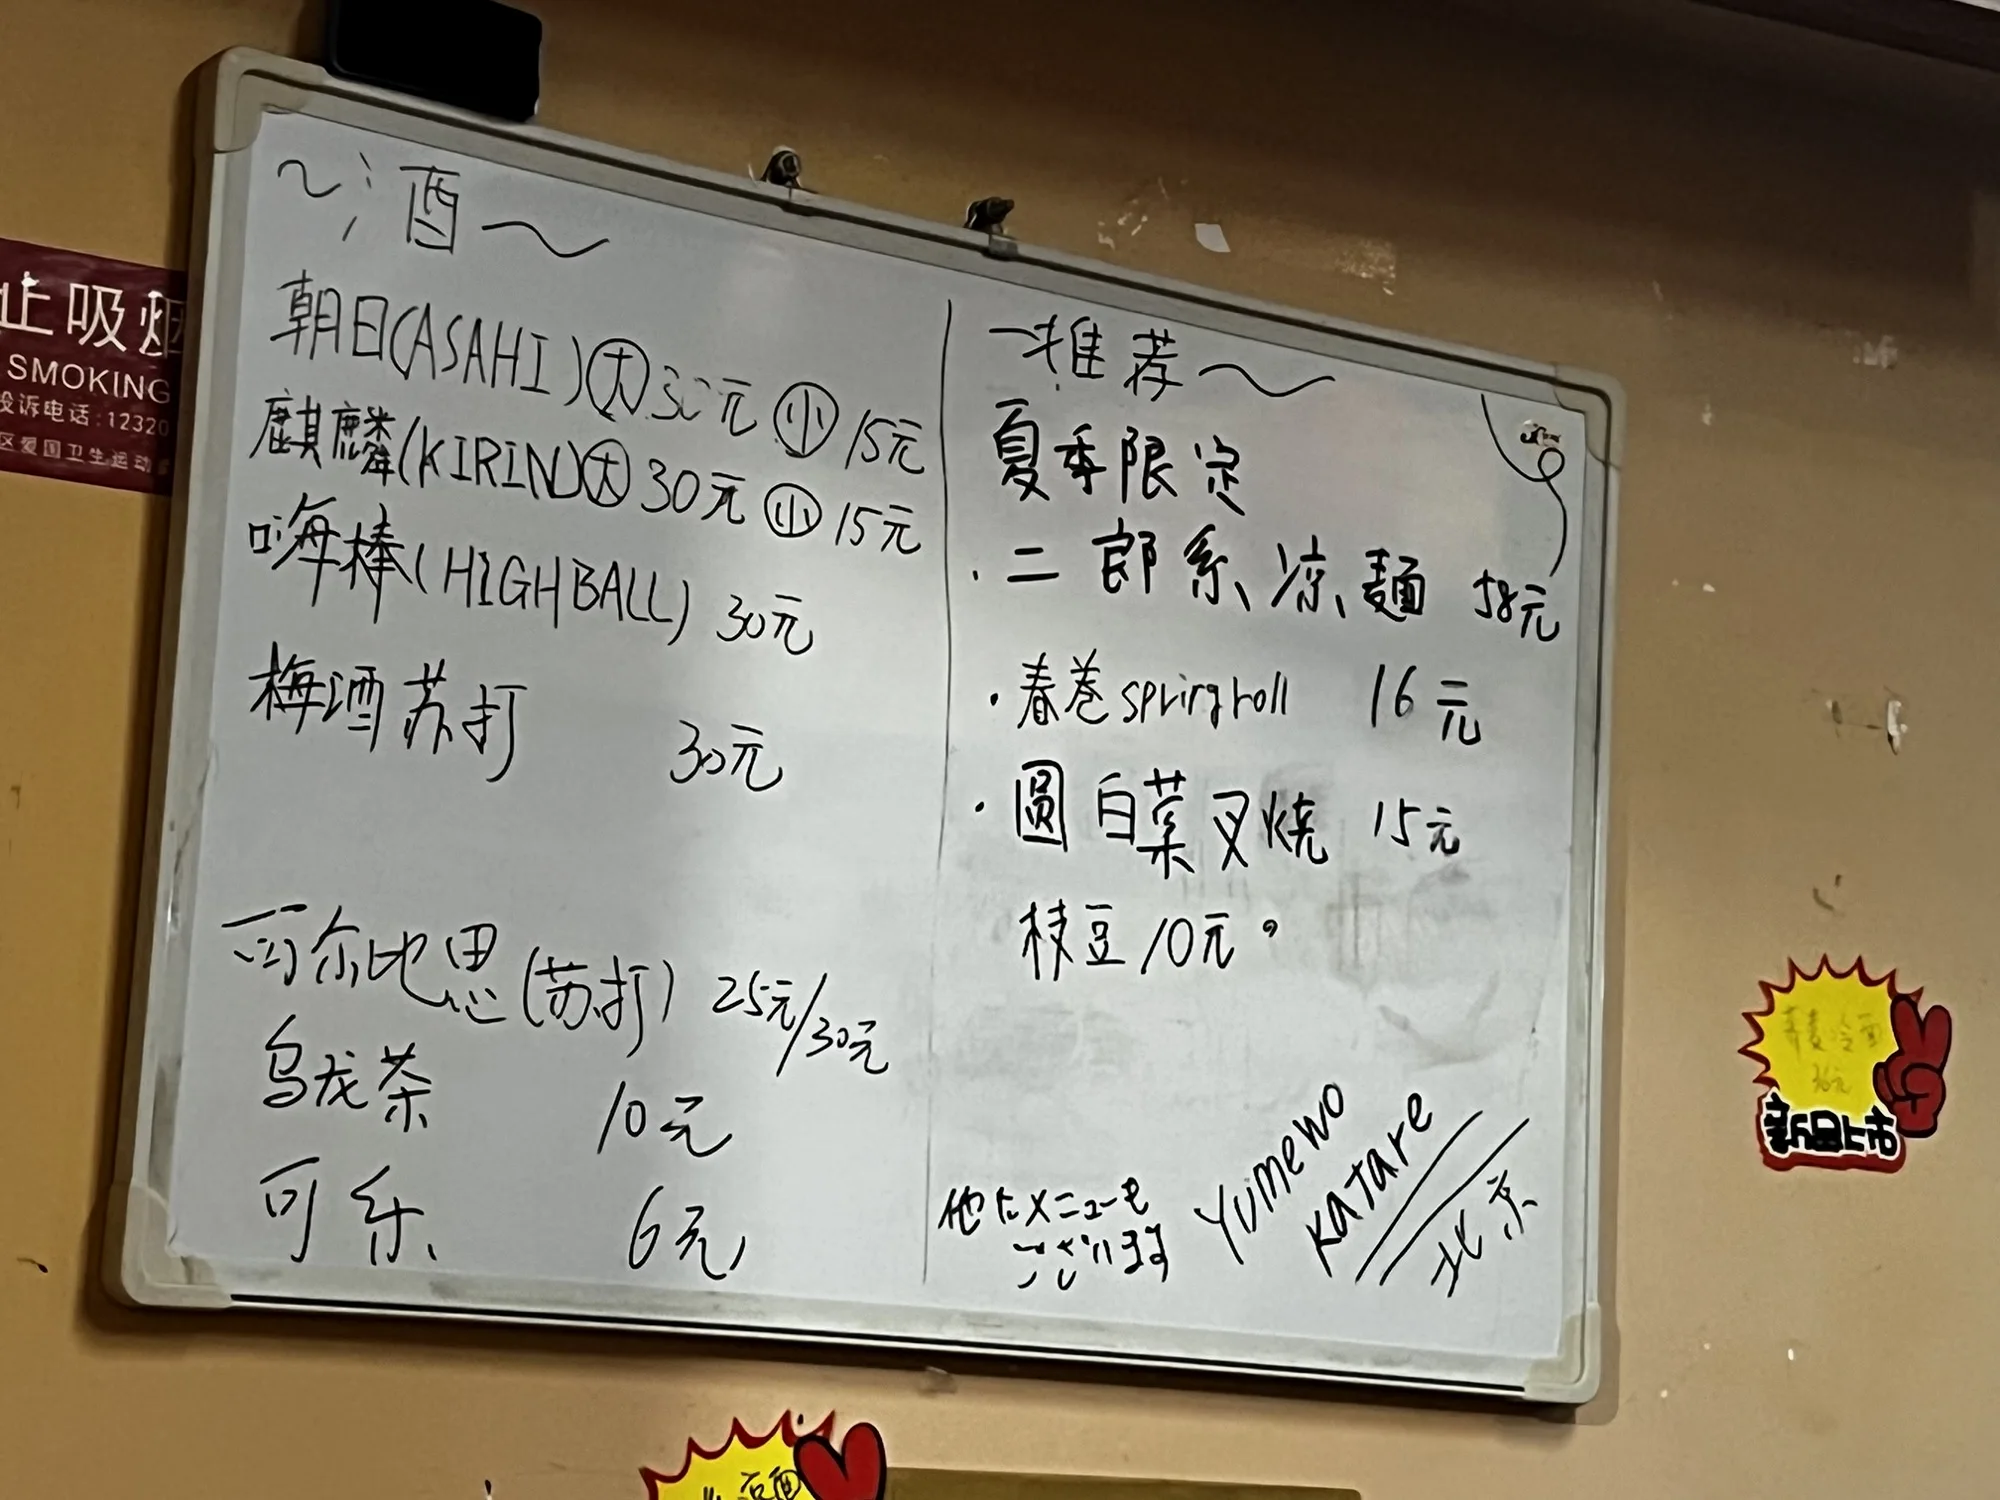 ~酒~
朝日(ASAHI)大30元 小15元
麒麟(KIRIN)大30元 小15元
嗨棒(HIGHBALL) 30元
梅酒苏打 30元
可尔比思(苏打) 25元/30元
乌龙茶 10元
可乐 6元
~推荐~
夏季限定
·二郎系凉麺 38元
·春卷springroll 16元
·圆白菜叉烧 15元
枝豆10元。
他にメニューも
ございます
Yumewo
Katare
北京
止吸烟
SMOKING
投诉电话:12320
区爱国卫生运动
荞麦冷面
36元
新品上市